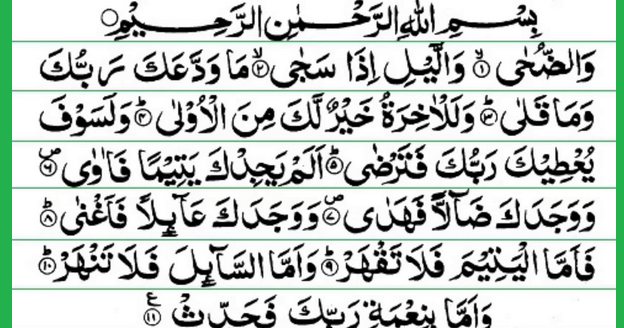 بِسْمِ اللهِ الرَّحْمٰنِ الرَّحِيْمِ ○
وَالضُّحٰى ۙ﴿۱﴾ وَالَّيْلِ اِذَا سَجٰى ۙ﴿۲﴾ مَا وَدَّعَكَ رَبُّكَ
وَمَا قَلٰى ؕ﴿۳﴾ وَلَلْاٰخِرَةُ خَيْرٌ لَّكَ مِنَ الْاُوْلٰى ؕ﴿۴﴾ وَلَسَوْفَ
يُعْطِيْكَ رَبُّكَ فَتَرْضٰى ؕ﴿۵﴾ اَلَمْ يَجِدْكَ يَتِيْمًا فَاٰوٰى ۪﴿۶﴾
وَوَجَدَكَ ضَآلًّا فَهَدٰى ۪﴿۷﴾ وَوَجَدَكَ عَآىِٕلًا فَاَغْنٰى ؕ﴿۸﴾
فَاَمَّا الْيَتِيْمَ فَلَا تَقْهَرْ ؕ﴿۹﴾ وَاَمَّا السَّآىِٕلَ فَلَا تَنْهَرْ ؕ﴿۱۰﴾
وَاَمَّا بِنِعْمَةِ رَبِّكَ فَحَدِّثْ ﴿۱۱﴾ ع